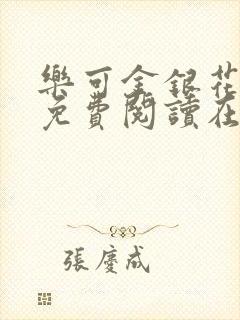 樂可金銀花
免費閱讀在
張慶成